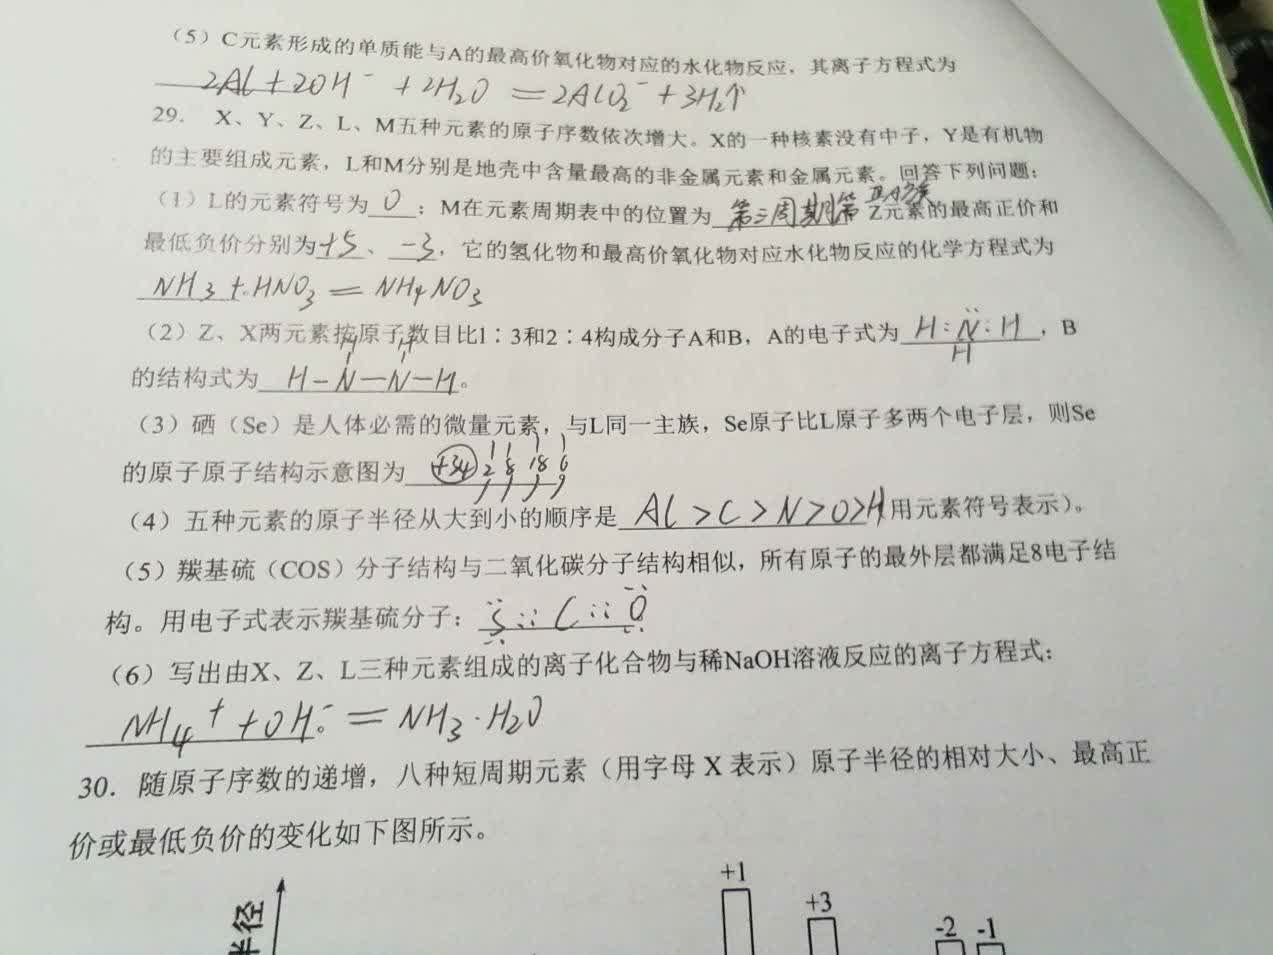 （5）C元素形成的单质能与A的最高价氧化物对应的水化物反应，其离子方程式为
2Al+2OH⁻+2H₂O=2AlO₂⁻+3H₂↑
29. X、Y、Z、L、M五种元素的原子序数依次增大。X的一种核素没有中子，Y是有机物
的主要组成元素，L和M分别是地壳中含量最高的非金属元素和金属元素。回答下列问题：
（1）L的元素符号为 O ；M在元素周期表中的位置为 第三周期第ⅢA族 Z元素的最高正价和
最低负价分别为+5、-3，它的氢化物和最高价氧化物对应水化物反应的化学方程式为
NH₃+HNO₃=NH₄NO₃
（2）Z、X两元素按原子数目比1∶3和2∶4构成分子A和B，A的电子式为 H:N:H ，B
H
H H
的结构式为 H-N-N-H 。
（3）硒（Se）是人体必需的微量元素，与L同一主族，Se原子比L原子多两个电子层，则Se
的原子原子结构示意图为 +34 2 8 18 6
（4）五种元素的原子半径从大到小的顺序是 Al>C>N>O>H 用元素符号表示）。
（5）羰基硫（COS）分子结构与二氧化碳分子结构相似，所有原子的最外层都满足8电子结
构。用电子式表示羰基硫分子： S::C::O
（6）写出由X、Z、L三种元素组成的离子化合物与稀NaOH溶液反应的离子方程式：
NH₄⁺+OH⁻=NH₃·H₂O
30. 随原子序数的递增，八种短周期元素（用字母 X 表示）原子半径的相对大小、最高正
价或最低负价的变化如下图所示。
半径
+1
+3
-2 -1